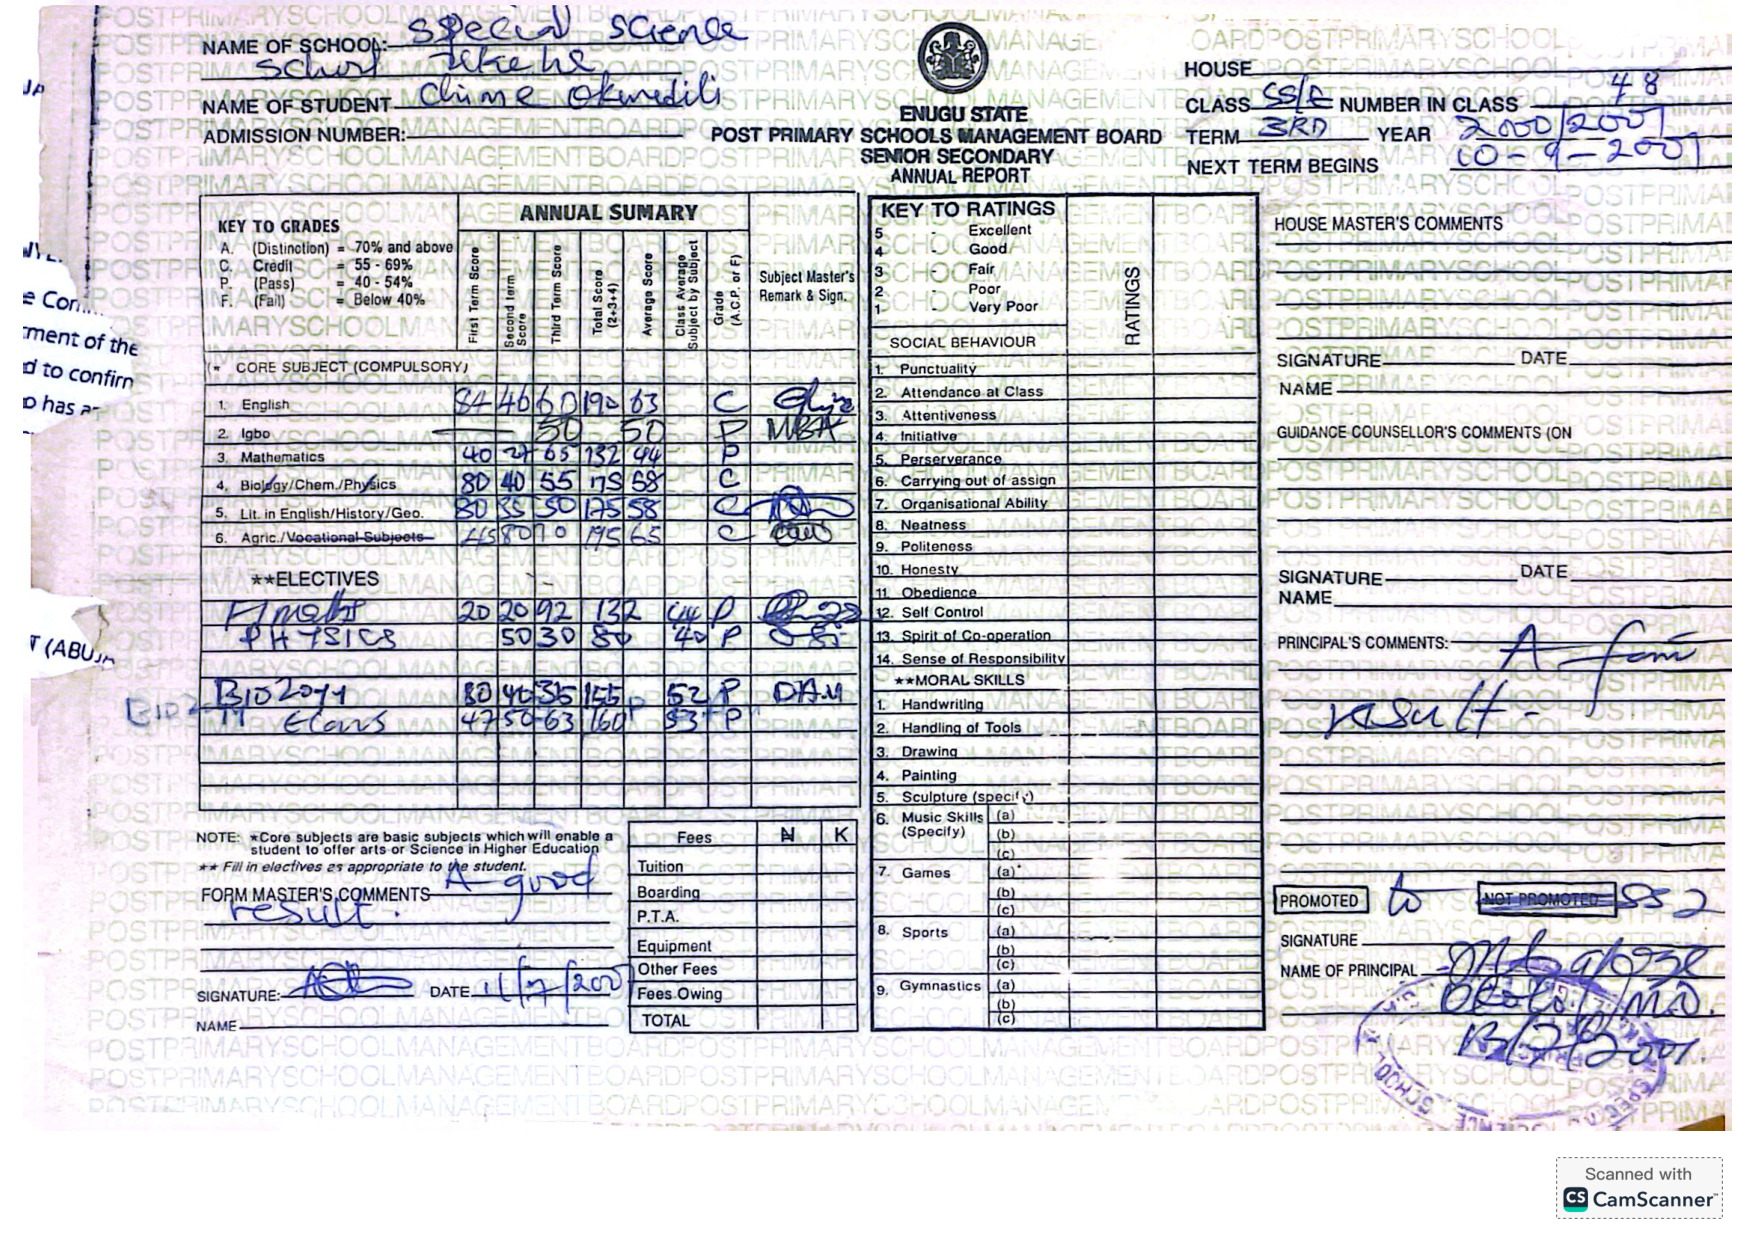 NAME OF SCHOOL: special science
school
NAME OF STUDENT chime Okwudili
ADMISSION NUMBER:
ENUGU STATE
POST PRIMARY SCHOOLS MANAGEMENT BOARD
SENIOR SECONDARY
ANNUAL REPORT
HOUSE
CLASS NUMBER IN CLASS 48
TERM 3RD YEAR 2000/2001
NEXT TERM BEGINS 10-9-2001
KEY TO GRADES
A. (Distinction) = 70% and above
C. Credit = 55 - 69%
P. (Pass) = 40 - 54%
F. (Fail) = Below 40%
ANNUAL SUMARY
First Term Score
Second term Score
Third Term Score
Total Score (2+3+4)
Average Score
Class Average Subject by Subject
Grade (A.C.P. or F)
Subject Master's Remark & Sign.
(* CORE SUBJECT (COMPULSORY)
1. English 84 46 60 190 63 C
2. Igbo 50 50 P MBA
3. Mathematics 40 27 65 132 44 P
4. Biology/Chem./Physics 80 40 55 175 58 C
5. Lit. in English/History/Geo. 80 35 50 175 58 C
6. Agric./Vocational Subjects 45 80 70 195 65 C
**ELECTIVES
F/maths 20 20 92 132 44 P
PHYSICS 50 30 80 40 P
BIOLOGY 80 40 35 155 52 P DAM
Econs 47 50 63 160 53 P
NOTE: *Core subjects are basic subjects which will enable a
student to offer arts or Science in Higher Education
** Fill in electives as appropriate to the student.
FORM MASTER'S COMMENTS A good
result.
SIGNATURE: DATE 11/7/2001
NAME
Fees N K
Tuition
Boarding
P.T.A.
Equipment
Other Fees
Fees Owing
TOTAL
KEY TO RATINGS
5 - Excellent
4 - Good
3 - Fair
2 - Poor
1 - Very Poor
RATINGS
SOCIAL BEHAVIOUR
1. Punctuality
2. Attendance at Class
3. Attentiveness
4. Initiative
5. Perserverance
6. Carrying out of assign
7. Organisational Ability
8. Neatness
9. Politeness
10. Honesty
11. Obedience
12. Self Control
13. Spirit of Co-operation
14. Sense of Responsibility
**MORAL SKILLS
1. Handwriting
2. Handling of Tools
3. Drawing
4. Painting
5. Sculpture (specify)
6. Music Skills (a)
(Specify) (b)
(c)
7. Games (a)
(b)
(c)
8. Sports (a)
(b)
(c)
9. Gymnastics (a)
(b)
(c)
HOUSE MASTER'S COMMENTS
SIGNATURE DATE
NAME
GUIDANCE COUNSELLOR'S COMMENTS (ON
SIGNATURE DATE
NAME
PRINCIPAL'S COMMENTS: A fair
result.
PROMOTED to NOT PROMOTED SS 2
SIGNATURE
NAME OF PRINCIPAL
13/7/2001.
ment of the
d to confirm
o has
T (ABUJA
Scanned with
CS CamScanner